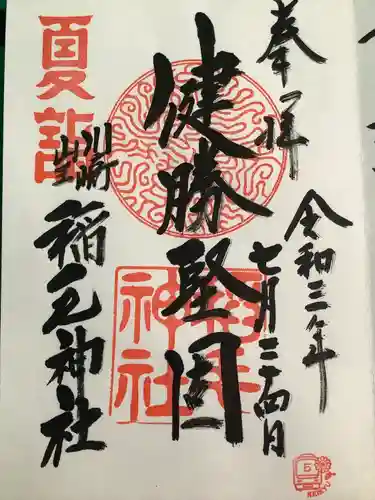 奉拝
令和三年
七月二四日
健勝堅固
夏詣
川崎
稲毛神社
稲毛神社